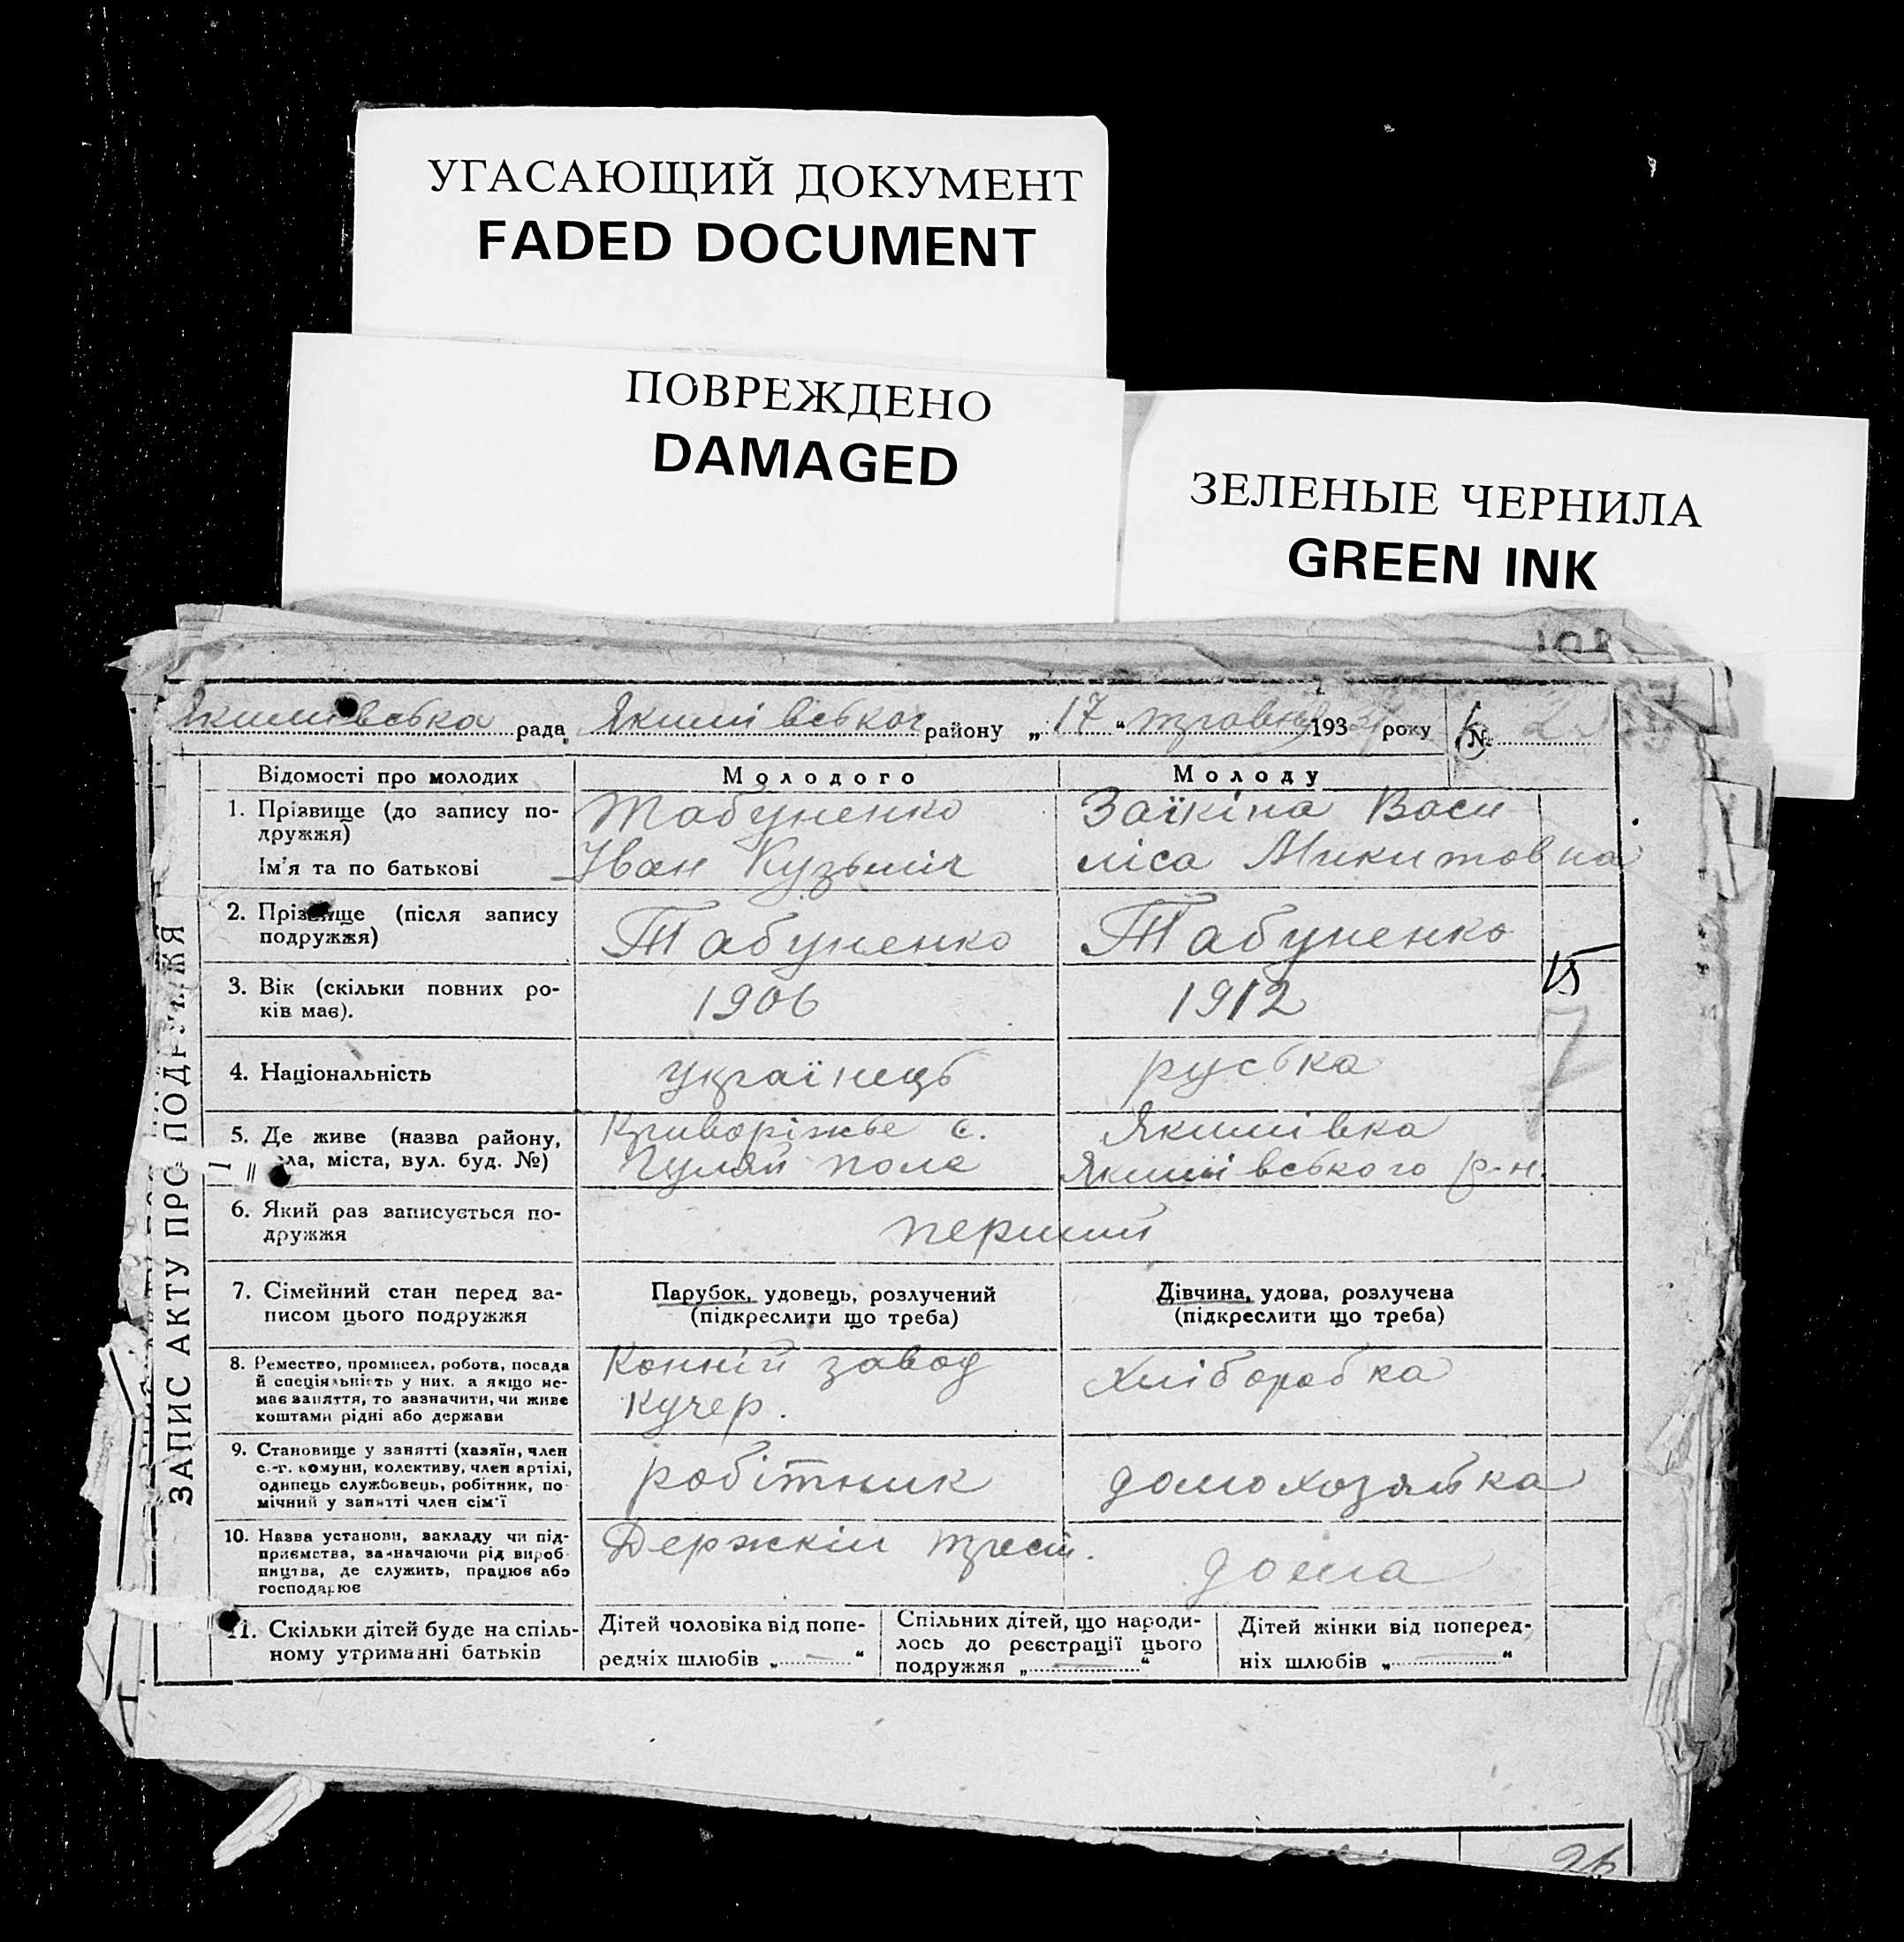 УГАСАЮЩИЙ ДОКУМЕНТ
FADED DOCUMENT
ПОВРЕЖДЕНО
DAMAGED
ЗЕЛЕНЫЕ ЧЕРНИЛА
GREEN INK
Якимівська рада Якимівського району „17“ травня 193 року №
ЗАПИС АКТУ ПРО ПОДРУЖЖЯ
Відомості про молодих Молодого Молоду
1. Прізвище (до запису по-
дружжя)
Ім'я та по батькові
Табуненко
Іван Кузьміч
Заїкіна Васи
ліса Микитовна
2. Прізвище (після запису
подружжя)
Табуненко
Табуненко
3. Вік (скільки повних ро-
ків має).
1906
1912
15
4. Національність
українець
руська
7
5. Де живе (назва району,
села, міста, вул. буд. №)
Криворіжье с.
Гуляй поле
Якимівка
Якимівського р-н.
6. Який раз записується по-
дружжя
перший
7. Сімейний стан перед за-
писом цього подружжя
Парубок, удовець, розлучений
(підкреслити що треба)
Дівчина, удова, розлучена
(підкреслити що треба)
8. Ремество, промисел, робота, посада
й спеціяльність у них, а якщо не-
має заняття, то зазначити, чи живе
коштами рідні або держави
Конній завод
Кучер.
Хліборобка
9. Становище у занятті (хазяїн, член
с.-г. комуни, колективу, член артілі,
одинець службовець, робітник, по-
мічний у занятті член сім'ї
робітник
домохозяйка
10. Назва установи, закладу чи під-
приємства, зазначаючи рід вироб-
ництва, де служить, працює або
господарює
Держкін трест.
дома
11. Скільки дітей буде на спіль-
ному утриманні батьків
Дітей чоловіка від попе-
редніх шлюбів „—“
Спільних дітей, що народи-
лось до реєстрації цього
подружжя „—“
Дітей жінки від поперед-
ніх шлюбів „—“
26